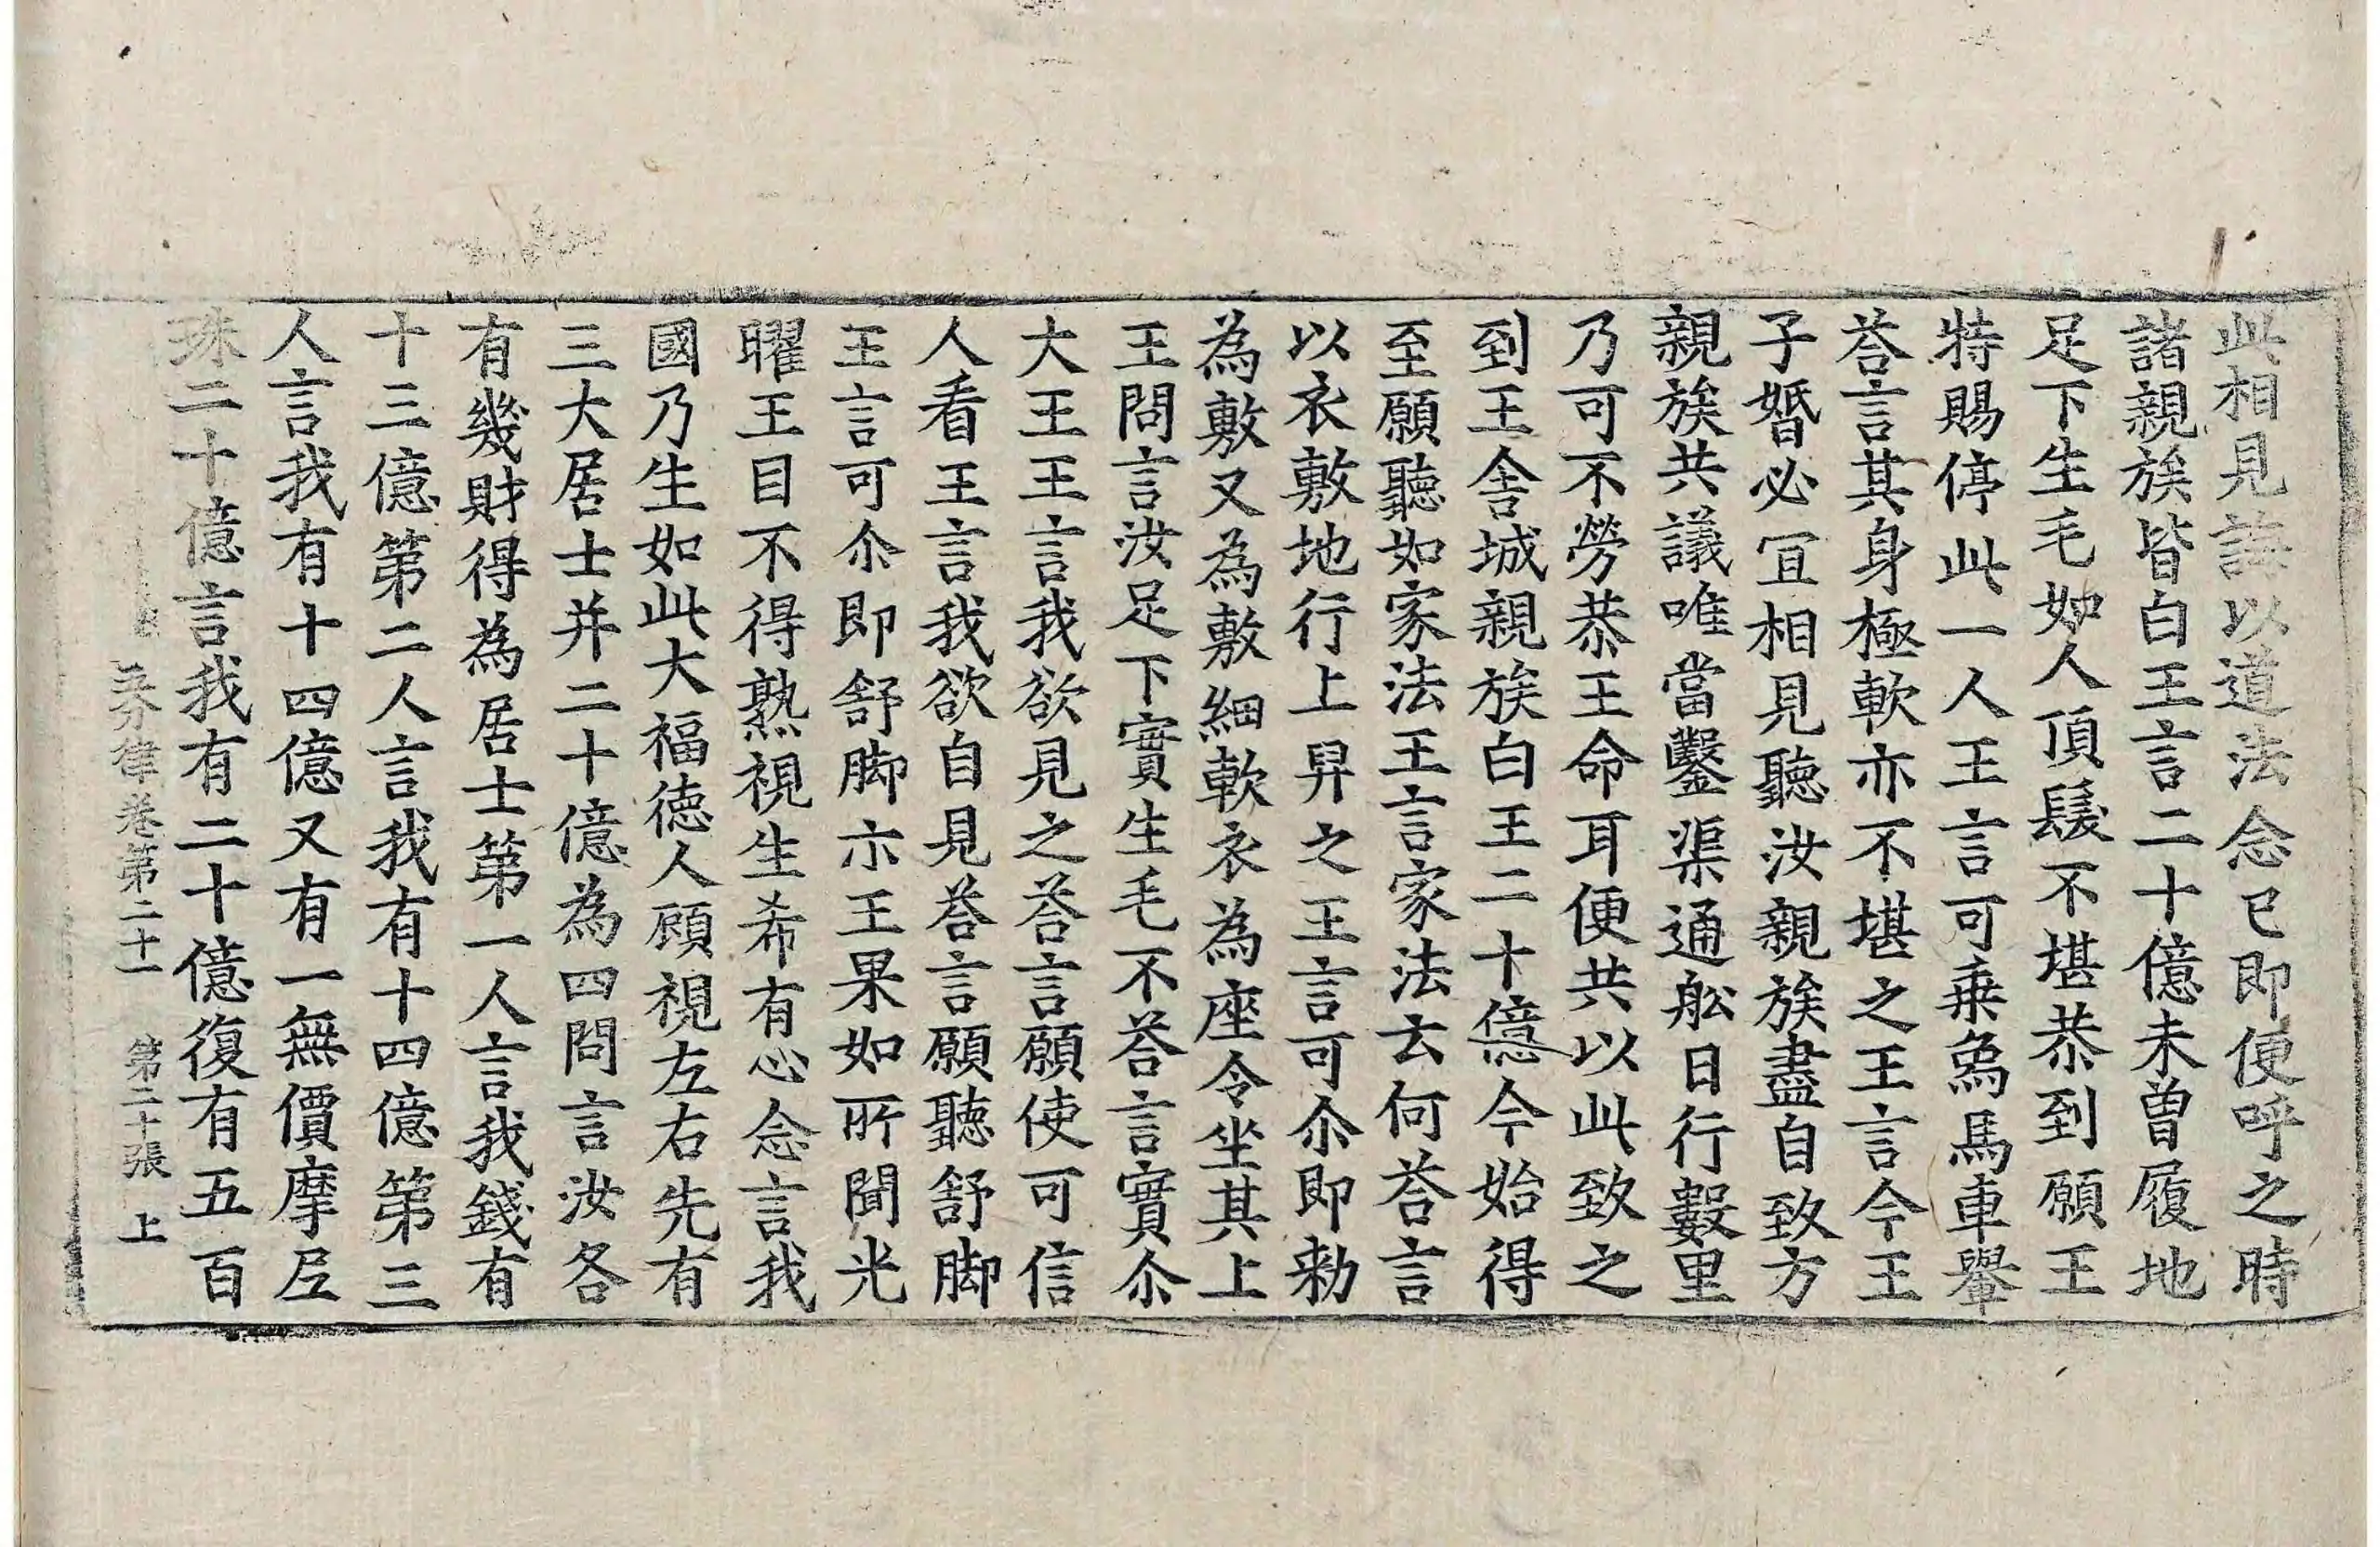 此相見誨以道法念已即便呼之時
諸親族皆白王言二十億未曾履地
足下生毛如人頂髮不堪恭到願王
特賜停此一人王言可乗象馬車轝
荅言其身極軟亦不堪之王言今王
子婚必宜相見聽汝親族盡自致方
親族共議唯當鑿渠通舩日行數里
乃可不勞恭王命耳便共以此致之
到王舍城親族白王二十億今始得
至願聽如家法王言家法云何荅言
以衣敷地行上昇之王言可尒即勑
為敷又為敷細軟衣為座令坐其上
王問言汝足下實生毛不荅言實尒
大王王言我欲見之荅言願使可信
人看王言我欲自見荅言願聽舒脚
王言可尒即舒脚示王果如所聞光
曜王目不得熟視生希有心念言我
國乃生如此大福德人顧視左右先有
三大居士并二十億為四問言汝各
有幾財得為居士第一人言我錢有
十三億第二人言我有十四億第三
人言我有十四億又有一無價摩尼
珠二十億言我有二十億復有五百
五分律卷第二十一 第二十張 上